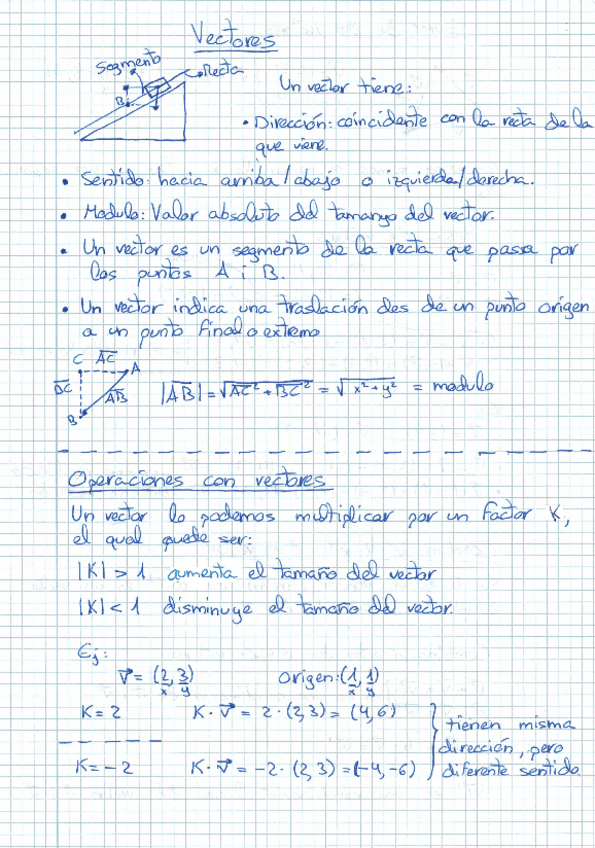 Vectores
Segmento
Recta
B
Un vector tiene:
• Dirección: coincidente con la recta de la
que viene.
• Sentido: hacia arriba/abajo o izquierda/derecha.
• Modulo: Valor absoluto del tamanyo del vector.
• Un vector es un segmento de la recta que passa por
los puntos A i B.
• Un vector indica una traslación des de un punto origen
a un punto final o extremo
C AC A
BC AB
B
|AB| = √AC² + BC² = √x² + y² = modulo
Operaciones con vectores
Un vector lo podemos multiplicar por un factor K,
el qual puede ser:
|K| > 1 aumenta el tamaño del vector
|K| < 1 disminuye el tamaño del vector.
Ej:
v = (2, 3) origen: (1, 1)
x y x y
K = 2 K · v = 2 · (2, 3) = (4, 6)
K = -2 K · v = -2 · (2, 3) = (-4, -6)
tienen misma
dirección, pero
diferente sentido.